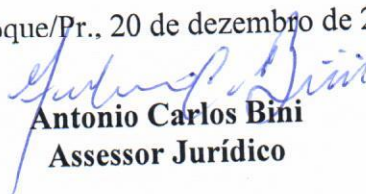 oque/Pr., 20 de dezembro de 2
Antonio Carlos Bini
Assessor Jurídico